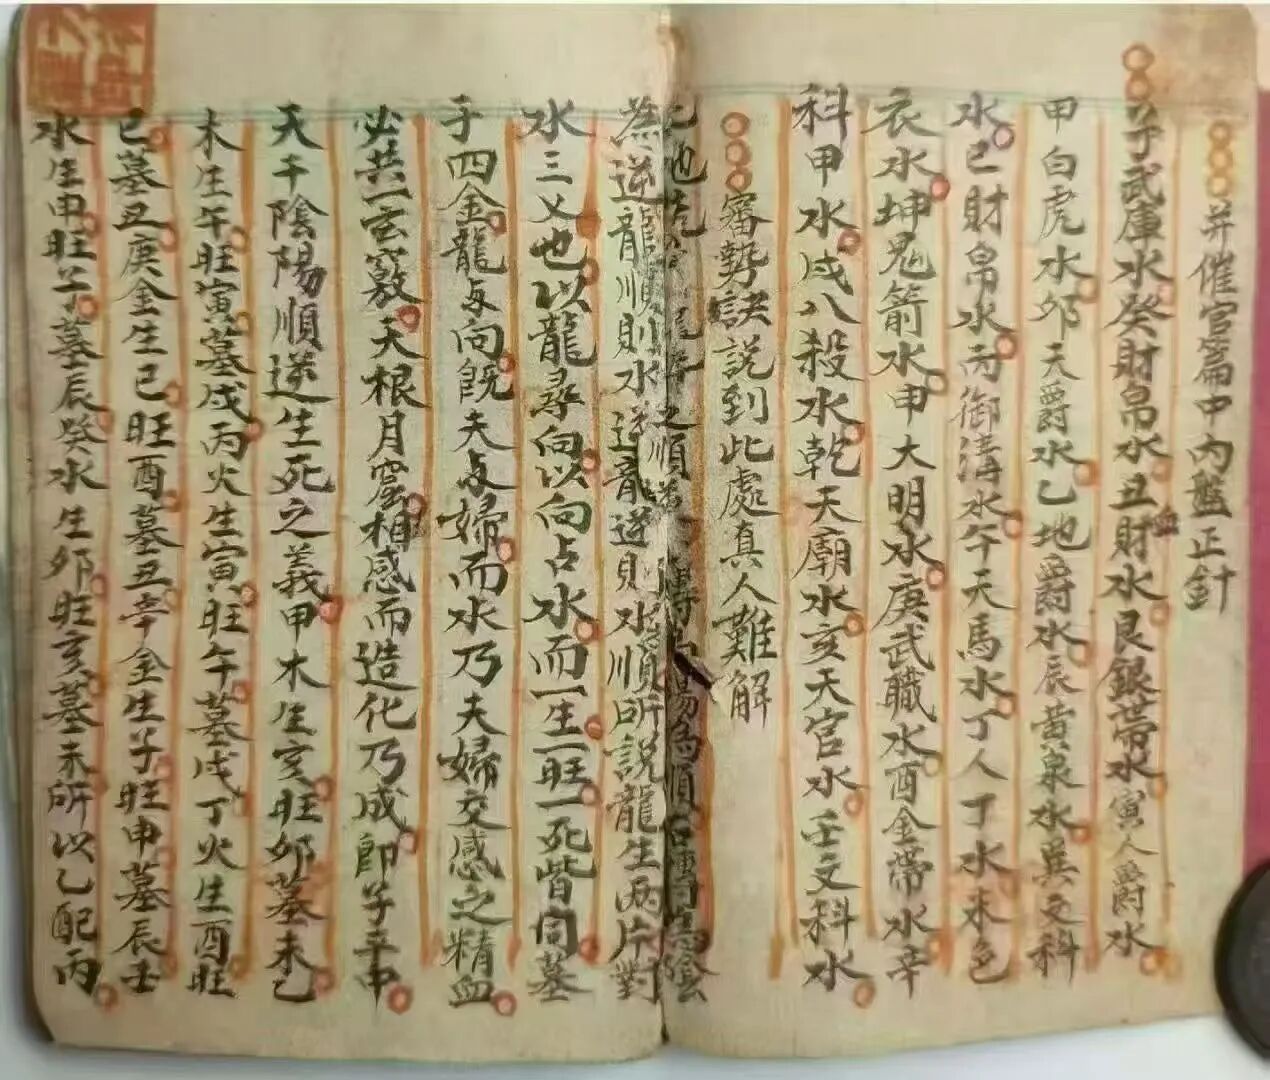 并催官篇中內盤正針
子武庫水癸財帛水丑財水艮銀帶水寅人爵水
甲白虎水卯天爵水乙地爵水辰黃泉水巽文科
水巳財帛水丙御溝水午天馬水丁人丁水未色
衣水坤鬼箭水申大明水庚武職水酉金帶水辛
科甲水戌八殺水乾天廟水亥天官水壬文科水
審勢訣說到此處真人難解
之順
陽為順右
陰
為逆龍順則水逆龍逆則水順所說龍生兩片對
水三乂也以龍尋向以向占水而一生一旺一死皆同墓
手四金龍与向既夫与婦而水乃夫婦交感之精血
必共一玄竅天根月窟相感而造化乃成即子平甲
天干陰陽順逆生死之義甲木生亥旺卯墓未乙
木生午旺寅墓戌丙火生寅旺午墓戌丁火生酉旺
巳墓丑庚金生巳旺酉墓丑辛金生子旺申墓辰壬
水生申旺子墓辰癸水生卯旺亥墓未所以乙配丙